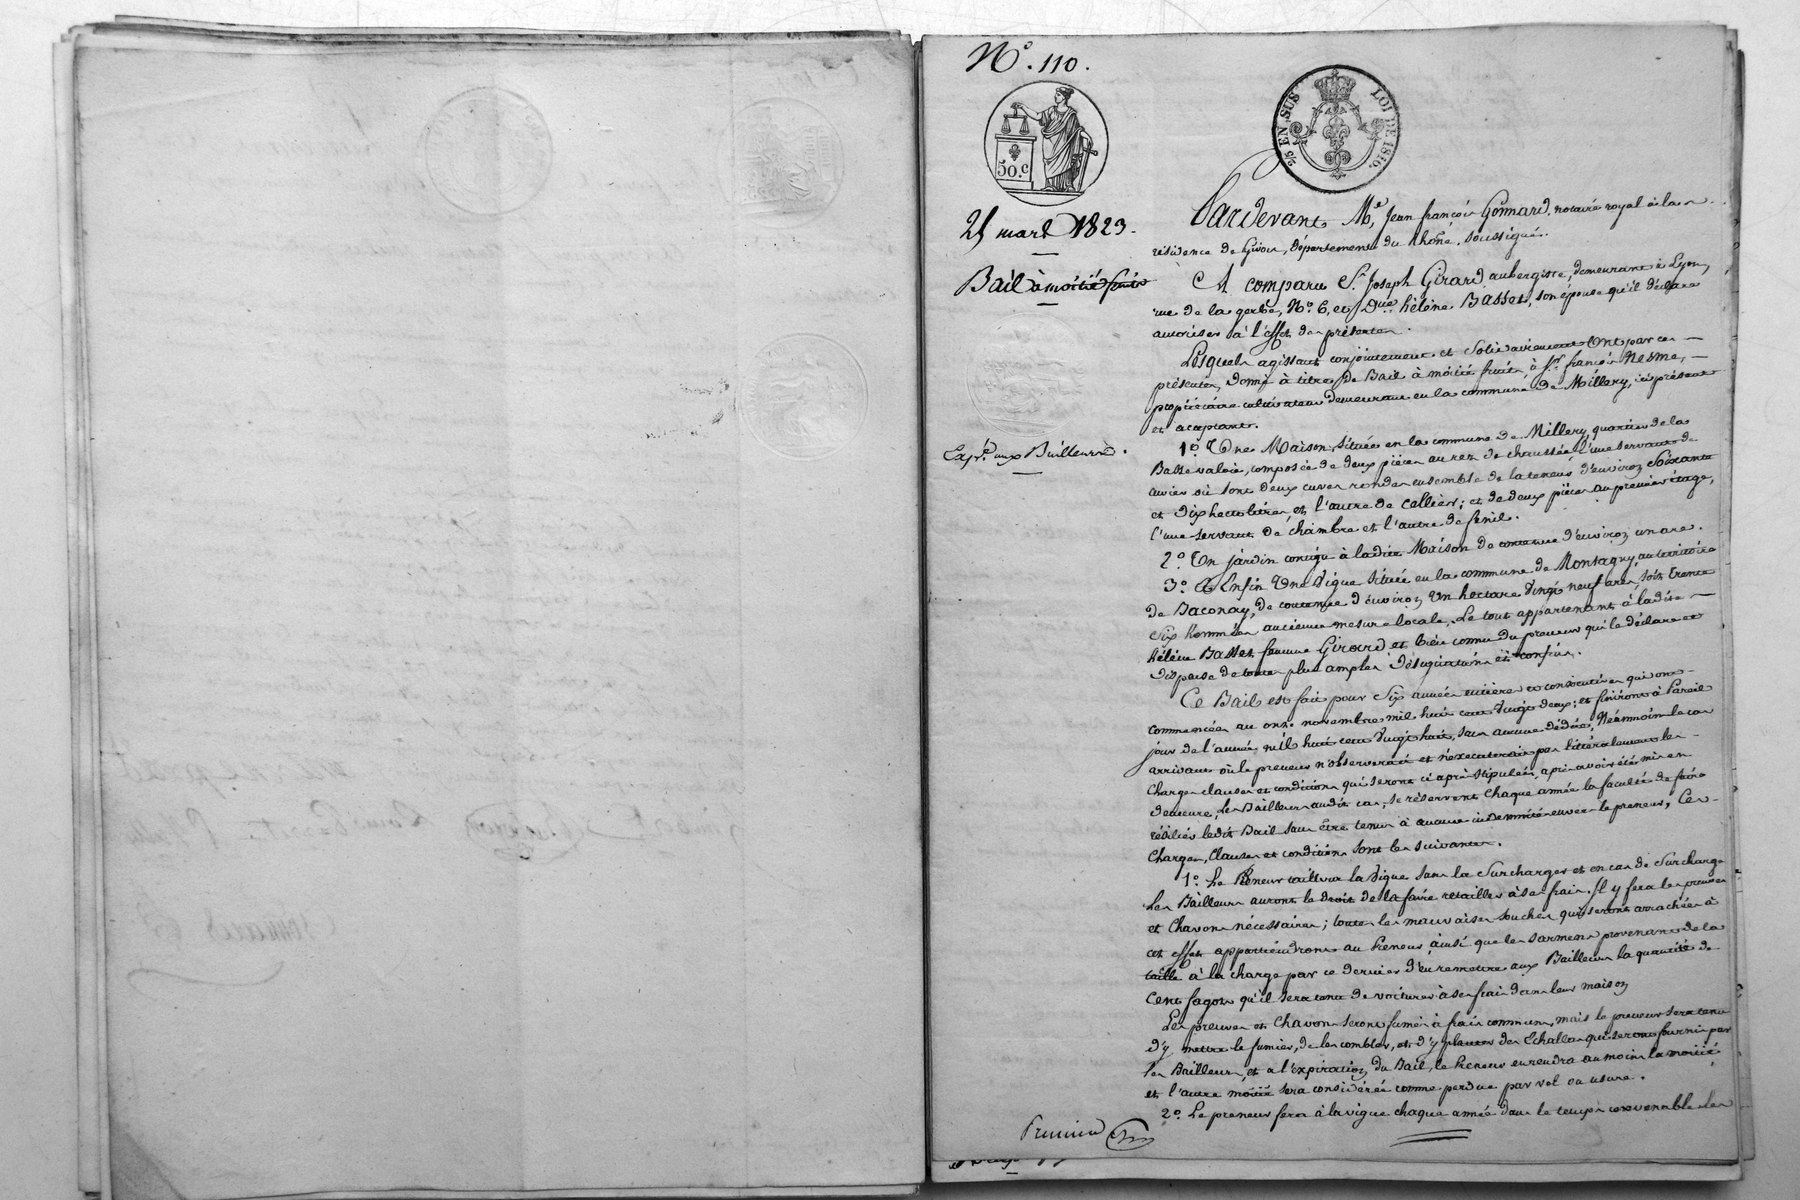 N.° 110.
50.c
2/5 EN SUS LOI DE 1816.
25 mars 1823.
Bail à moitié fruits
Expé. aux Bailleurs.
Pardevant M.e Jean françois Gonnard, notaire royal à la
résidence de Givors, département du rhône, soussigné.
A comparu S.r Joseph Girard, aubergiste, demeurant à Lyon,
rue de la gerbe, N.° 6, et D.me hélène Basset, son épouse qu'il déclare
autoriser à l'effet des présentes.
Lesquels agissant conjointement et solidairement Ont par ces
présentes, donné à titre de Bail à moitié fruits, à S.r françois Nesme,
propriétaire cultivateur demeurant en la commune de Millery, ici présent
et acceptant.
1.° Une Maison, située en la commune de Millery quartier de la
Basse valoie, composée de deux pièces au rez de chaussée, l'une servant de
cuvier où sont deux cuves rondes ensemble de la teneur d'environ Soixante
et dix hectolitres, et l'autre de Cellier; et de deux pièces au premier étage,
l'une servant de chambre et l'autre de fenil.
2.° Un jardin contigu à ladite Maison de contenue d'environ un are.
3.° Et Enfin Une Vigne située en la commune de Montagny, au territoire
de Baconay, de contenue d'environ Un hectare Vingt neuf ares, soit trente
Six hommées ancienne mesure locale, Le tout appartenant à ladite
hélène Basset femme Girard et bien connu du preneur qui le déclare et
dispense de toutes plus amples désignations et confins.
Ce Bail est fait pour Six années entières et consécutives qui ont
commencées au onze novembre mil huit cent Vingt deux; et finiront à Pareil
jour de l'année mil huit cent Vingt huit, sans aucune dédite, Néanmoins le cas
arrivant où le preneur n'observerait et n'exécuterait pas littéralement les
charges clauses et conditions qui seront ci après stipulées, après avoir été mis en
demeure, Les Bailleurs audit cas, se réservent chaque année la faculté de faire
résilier ledit Bail sans être tenus à aucune indemnité envers le preneur, Ces
charges, clauses et conditions sont les suivantes.
1.° Le Preneur taillera la Vigne sans la Surcharger et en cas de Surcharge
Les Bailleurs auront le droit de la faire retailler à ses frais. Il y fera les preuves
et Chavons nécessaires; toutes les mauvaises souches qui seront arrachées à
cet effet appartiendront au Preneur ainsi que les sarmens provenant de la
taille à la charge par ce dernier d'en remettre aux Bailleurs la quantité de
Cent fagots qu'il sera tenu de voiturer à ses frais dans leur maison
Les preuves et Chavons seront fumés à frais communs, mais le preneur sera tenu
d'y mettre le fumier, de les combler, et d'y planter des Echallas qui seront fournis par
les Bailleurs, et à l'expiration du Bail, le Preneur en rendra au moins la moitié
et l'autre moitié sera considérée comme perdue par vol ou usure.
2.° Le preneur fera à la vigne chaque année dans le temps convenable les